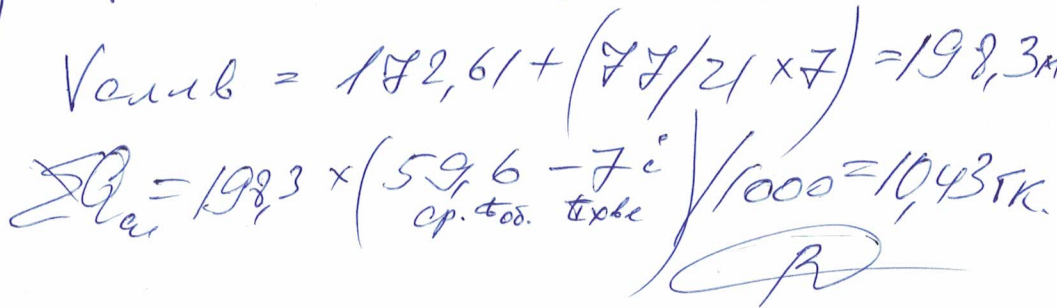 Vслив = 172,61 + (77/21 × 7) = 198,3м
ΣQсл = 198,3 × (59,6 – 7)/1000 = 10,43 гк.
ср. tоб. tхвс